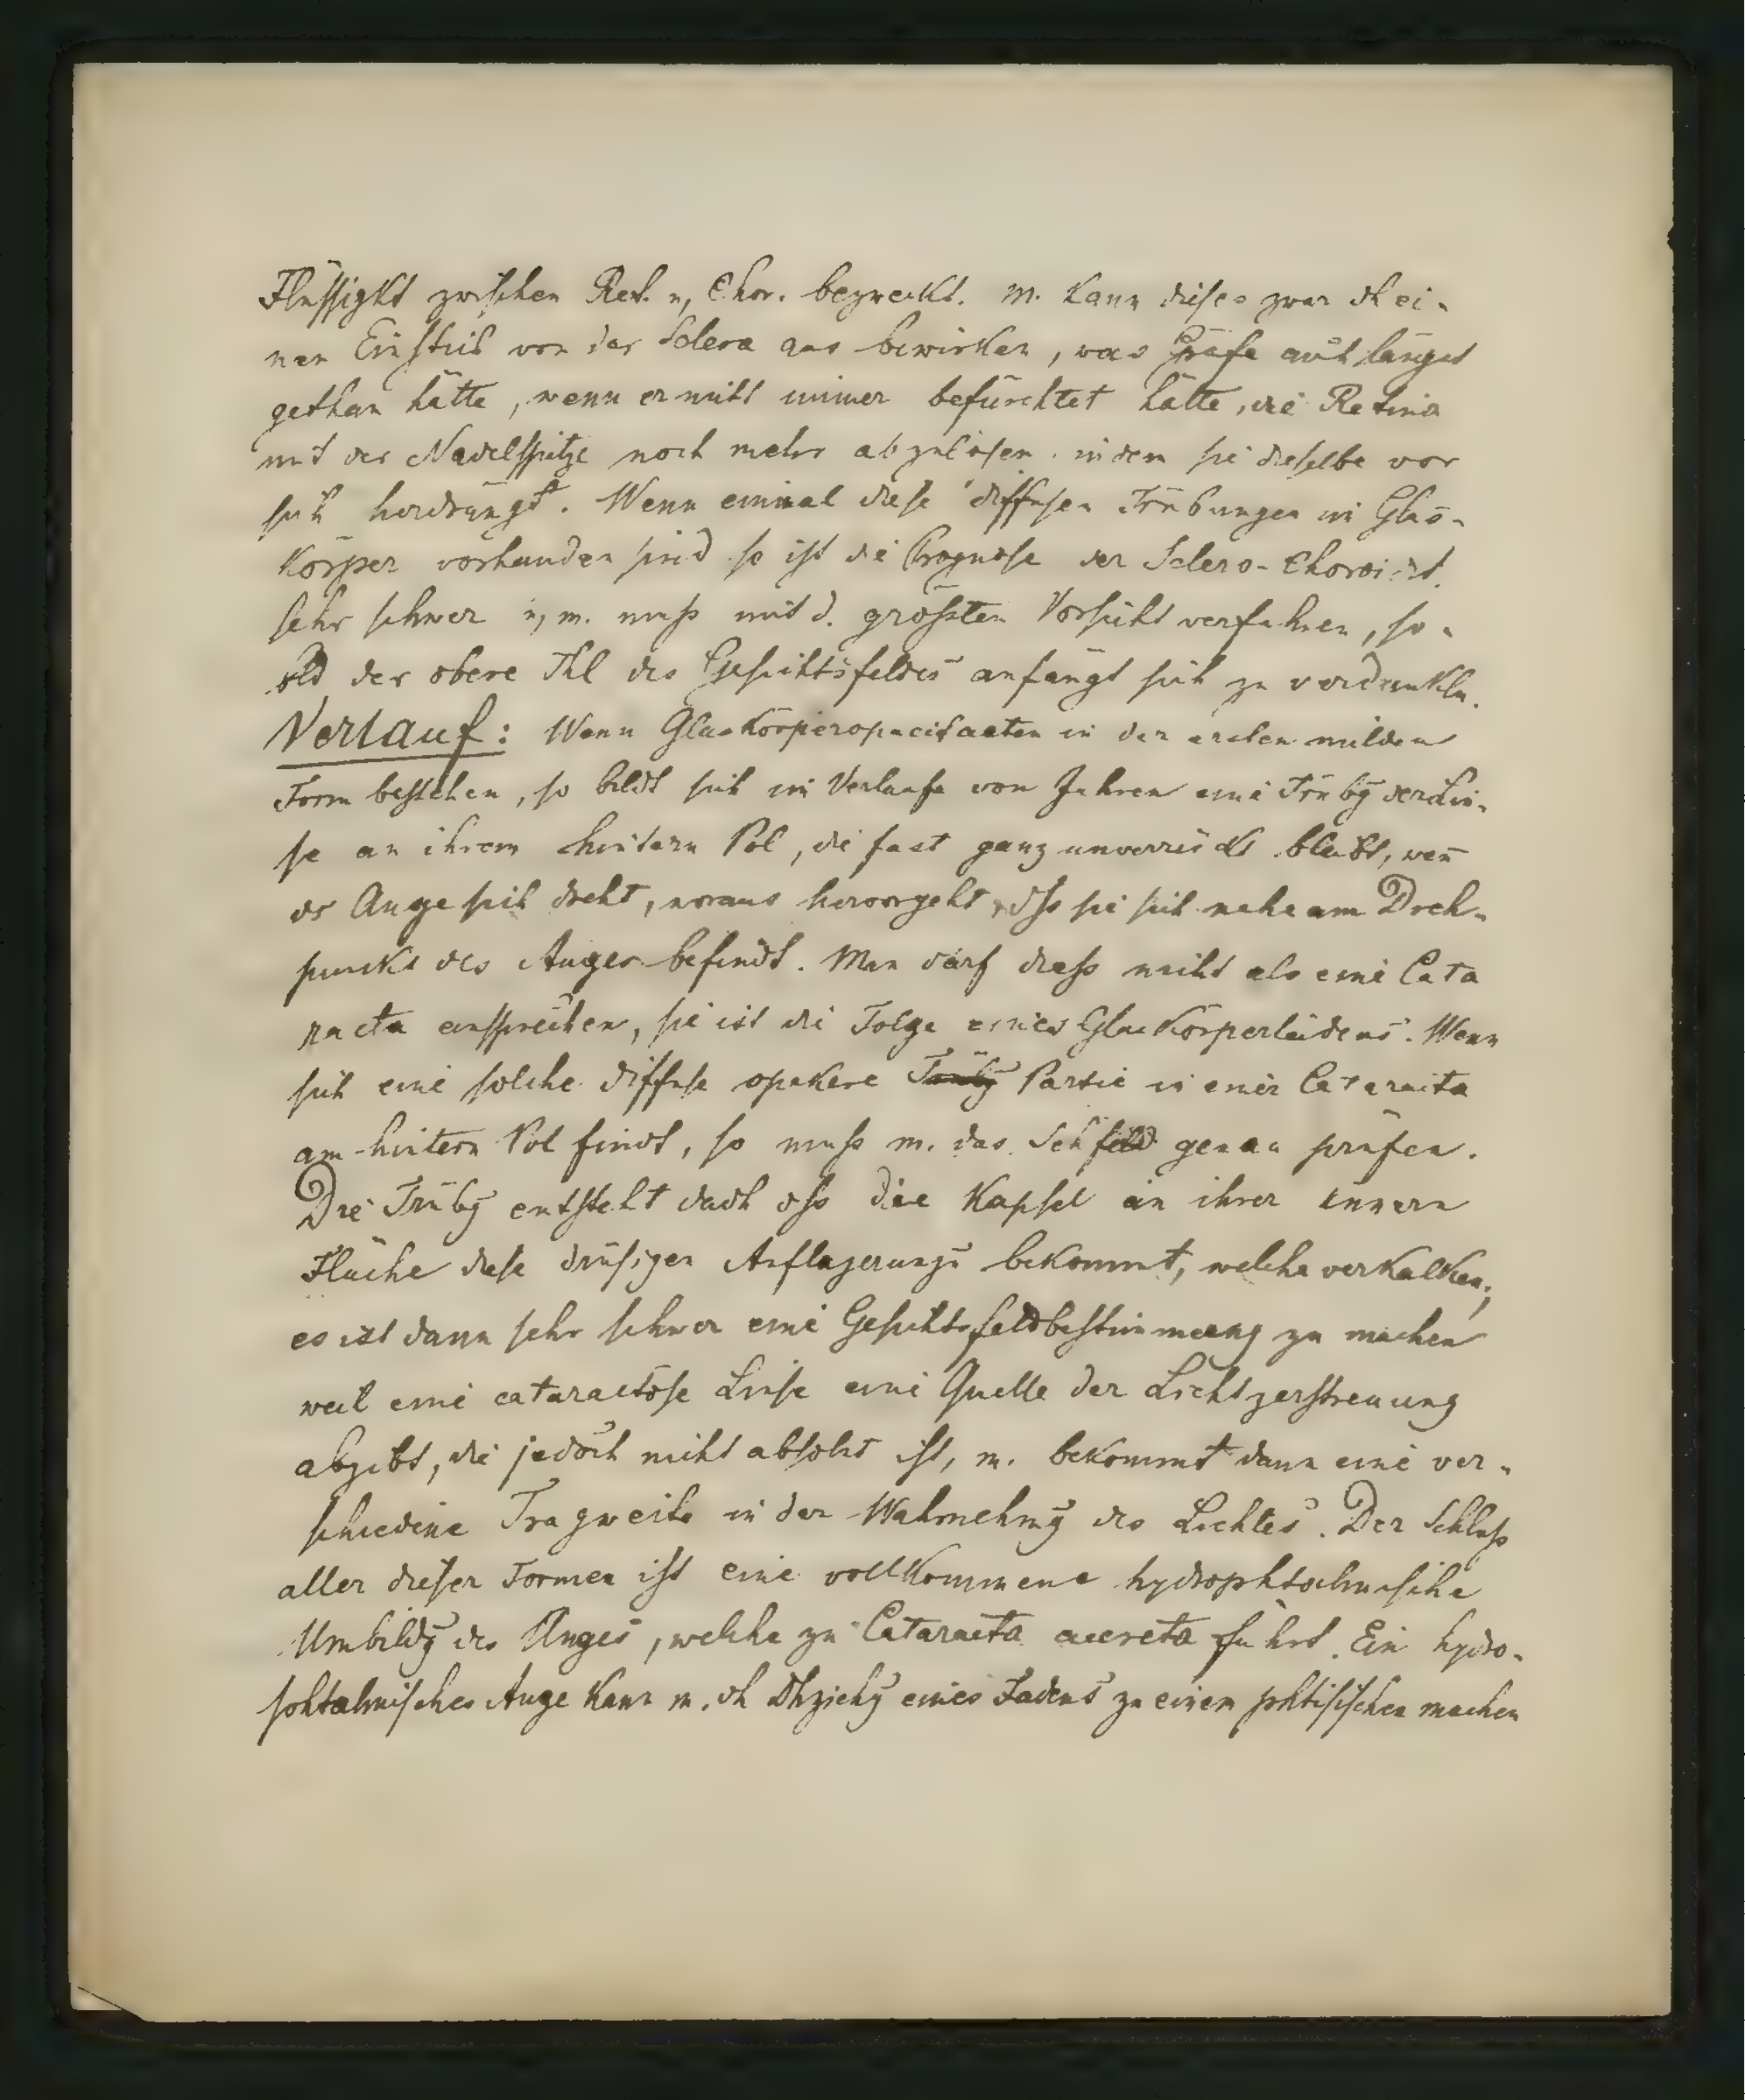 Flüssigkt zwischen Ret. u, Chor. bezweckt. M. kann dieses zwar dh ei-
nen Einstich von der Sclera aus bewirken, was Gräfe auch längst
gethan hätte, wenn er nicht immer befürchtet hätte, die Retina
mit der Nadelspitze noch mehr abzulösen, indem sie dieselbe vor
sich herdrängt. Wenn einmal diese diffusen Trübungen im Glas-
körper vorhanden sind so ist die Prognose der Sclero-Choroidit.
sehr schwer u, m. muss mit d. grössten Vorsicht verfahren, so-
bld der obere Thl des Gesichtsfeldes anfängt sich zu verdunkeln.
Verlauf: Wenn Glaskörperopacitaeten in der ersten milden
Form bestehen, so bildt sich im Verlaufe von Jahren eine Trübg der Lin-
se an ihrem hintern Pol, die fast ganz unverrückt bleibt, wen̄
ds Auge sich dreht, woraus hervorgeht, dss sie sich nahe am Dreh-
punkt des Auges befindt. Man darf diess nicht als eine Cata
racta ansprechen, sie ist die Folge eines Glaskörperleidens. Wenn
sich eine solche diffuse opakere Trübg Partie in einer Cataracta
am hintern Pol findt, so muss m. das Sehfeld genau prüfen.
Die Trübg entsteht dadh dss die Kapsel an ihrer innern
Fläche diese drüsigen Auflagerungē bekommt, welche verkalken;
es ist dann sehr schwer eine Gesichtsfeldbestimmung zu machen
weil eine cataractöse Linse eine Quelle der Lichtzerstreuung
abgibt, die jedoch nicht absolut ist, m. bekommt dann eine ver-
schiedene Tragweite in der Wahrnehmg des Lichtes. Der Schluss
aller dieser Formen ist eine vollkommene hydrophtalmische
Umbildg des Auges, welche zu Cataracta accreta führt. Ein hydro-
phtalmisches Auge kann m. dh Dhziehg eines Fadens zu einem phtisischen machen